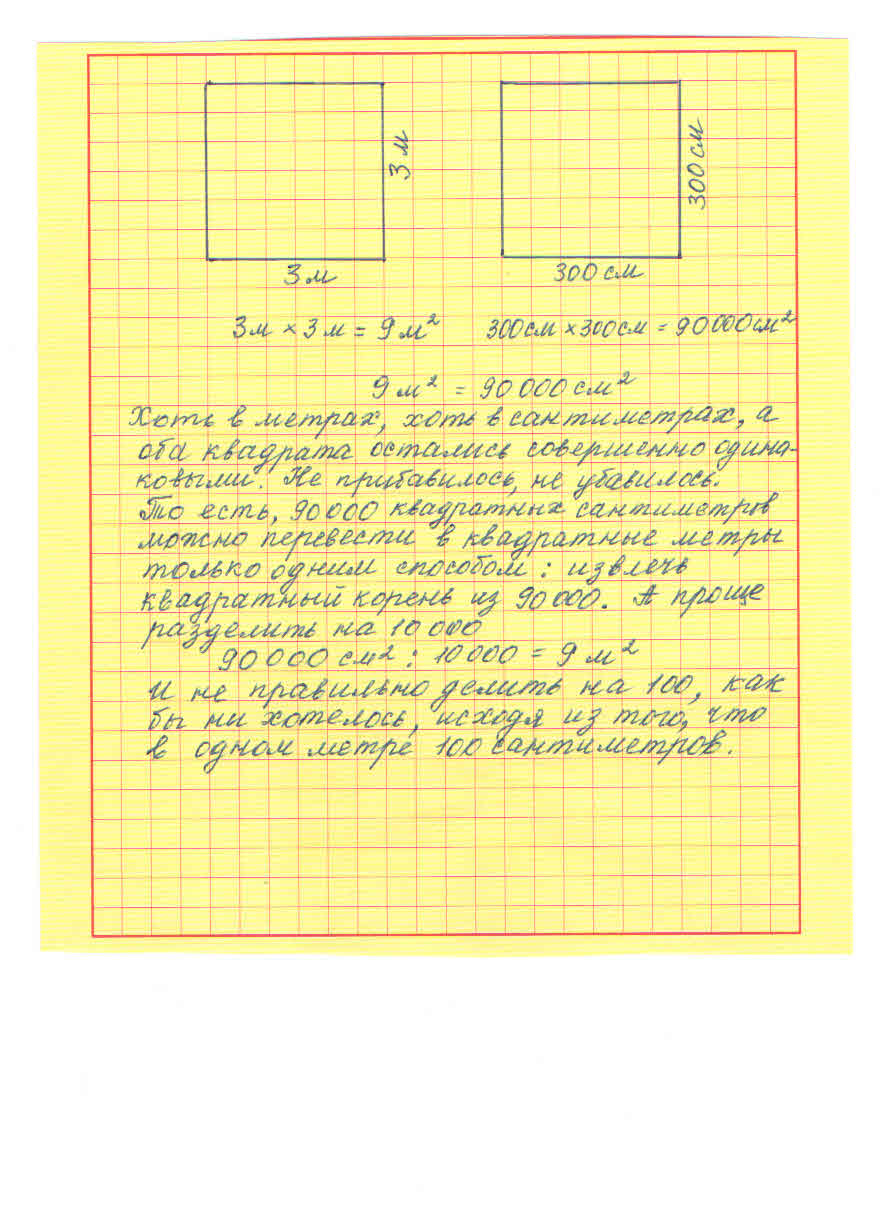 3 м
300 см
3 м
300 см
3м × 3м = 9 м²
300см × 300см = 90000см²
9 м² = 90 000 см²
Хоть в метрах, хоть в сантиметрах, а
оба квадрата остались совершенно одина-
ковыми. Не прибавилось, не убавилось.
То есть, 90 000 квадратных сантиметров
можно перевести в квадратные метры
только одним способом: извлечь
квадратный корень из 90 000. А проще
разделить на 10 000
90 000 см² : 10 000 = 9 м²
И не правильно делить на 100, как
бы ни хотелось, исходя из того, что
в одном метре 100 сантиметров.